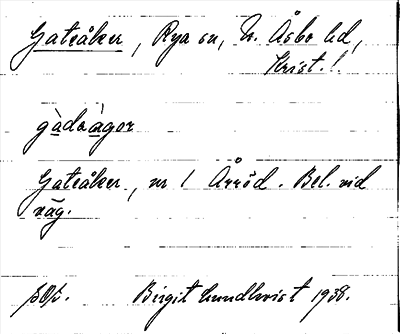 Gateåker, Rya sn, N. Åsbo hd,
Krist. l.
gàdaàgor
Gateåker, nr 1 Årröd. Bel. vid
väg.
Birgit Lundkvist 1938.